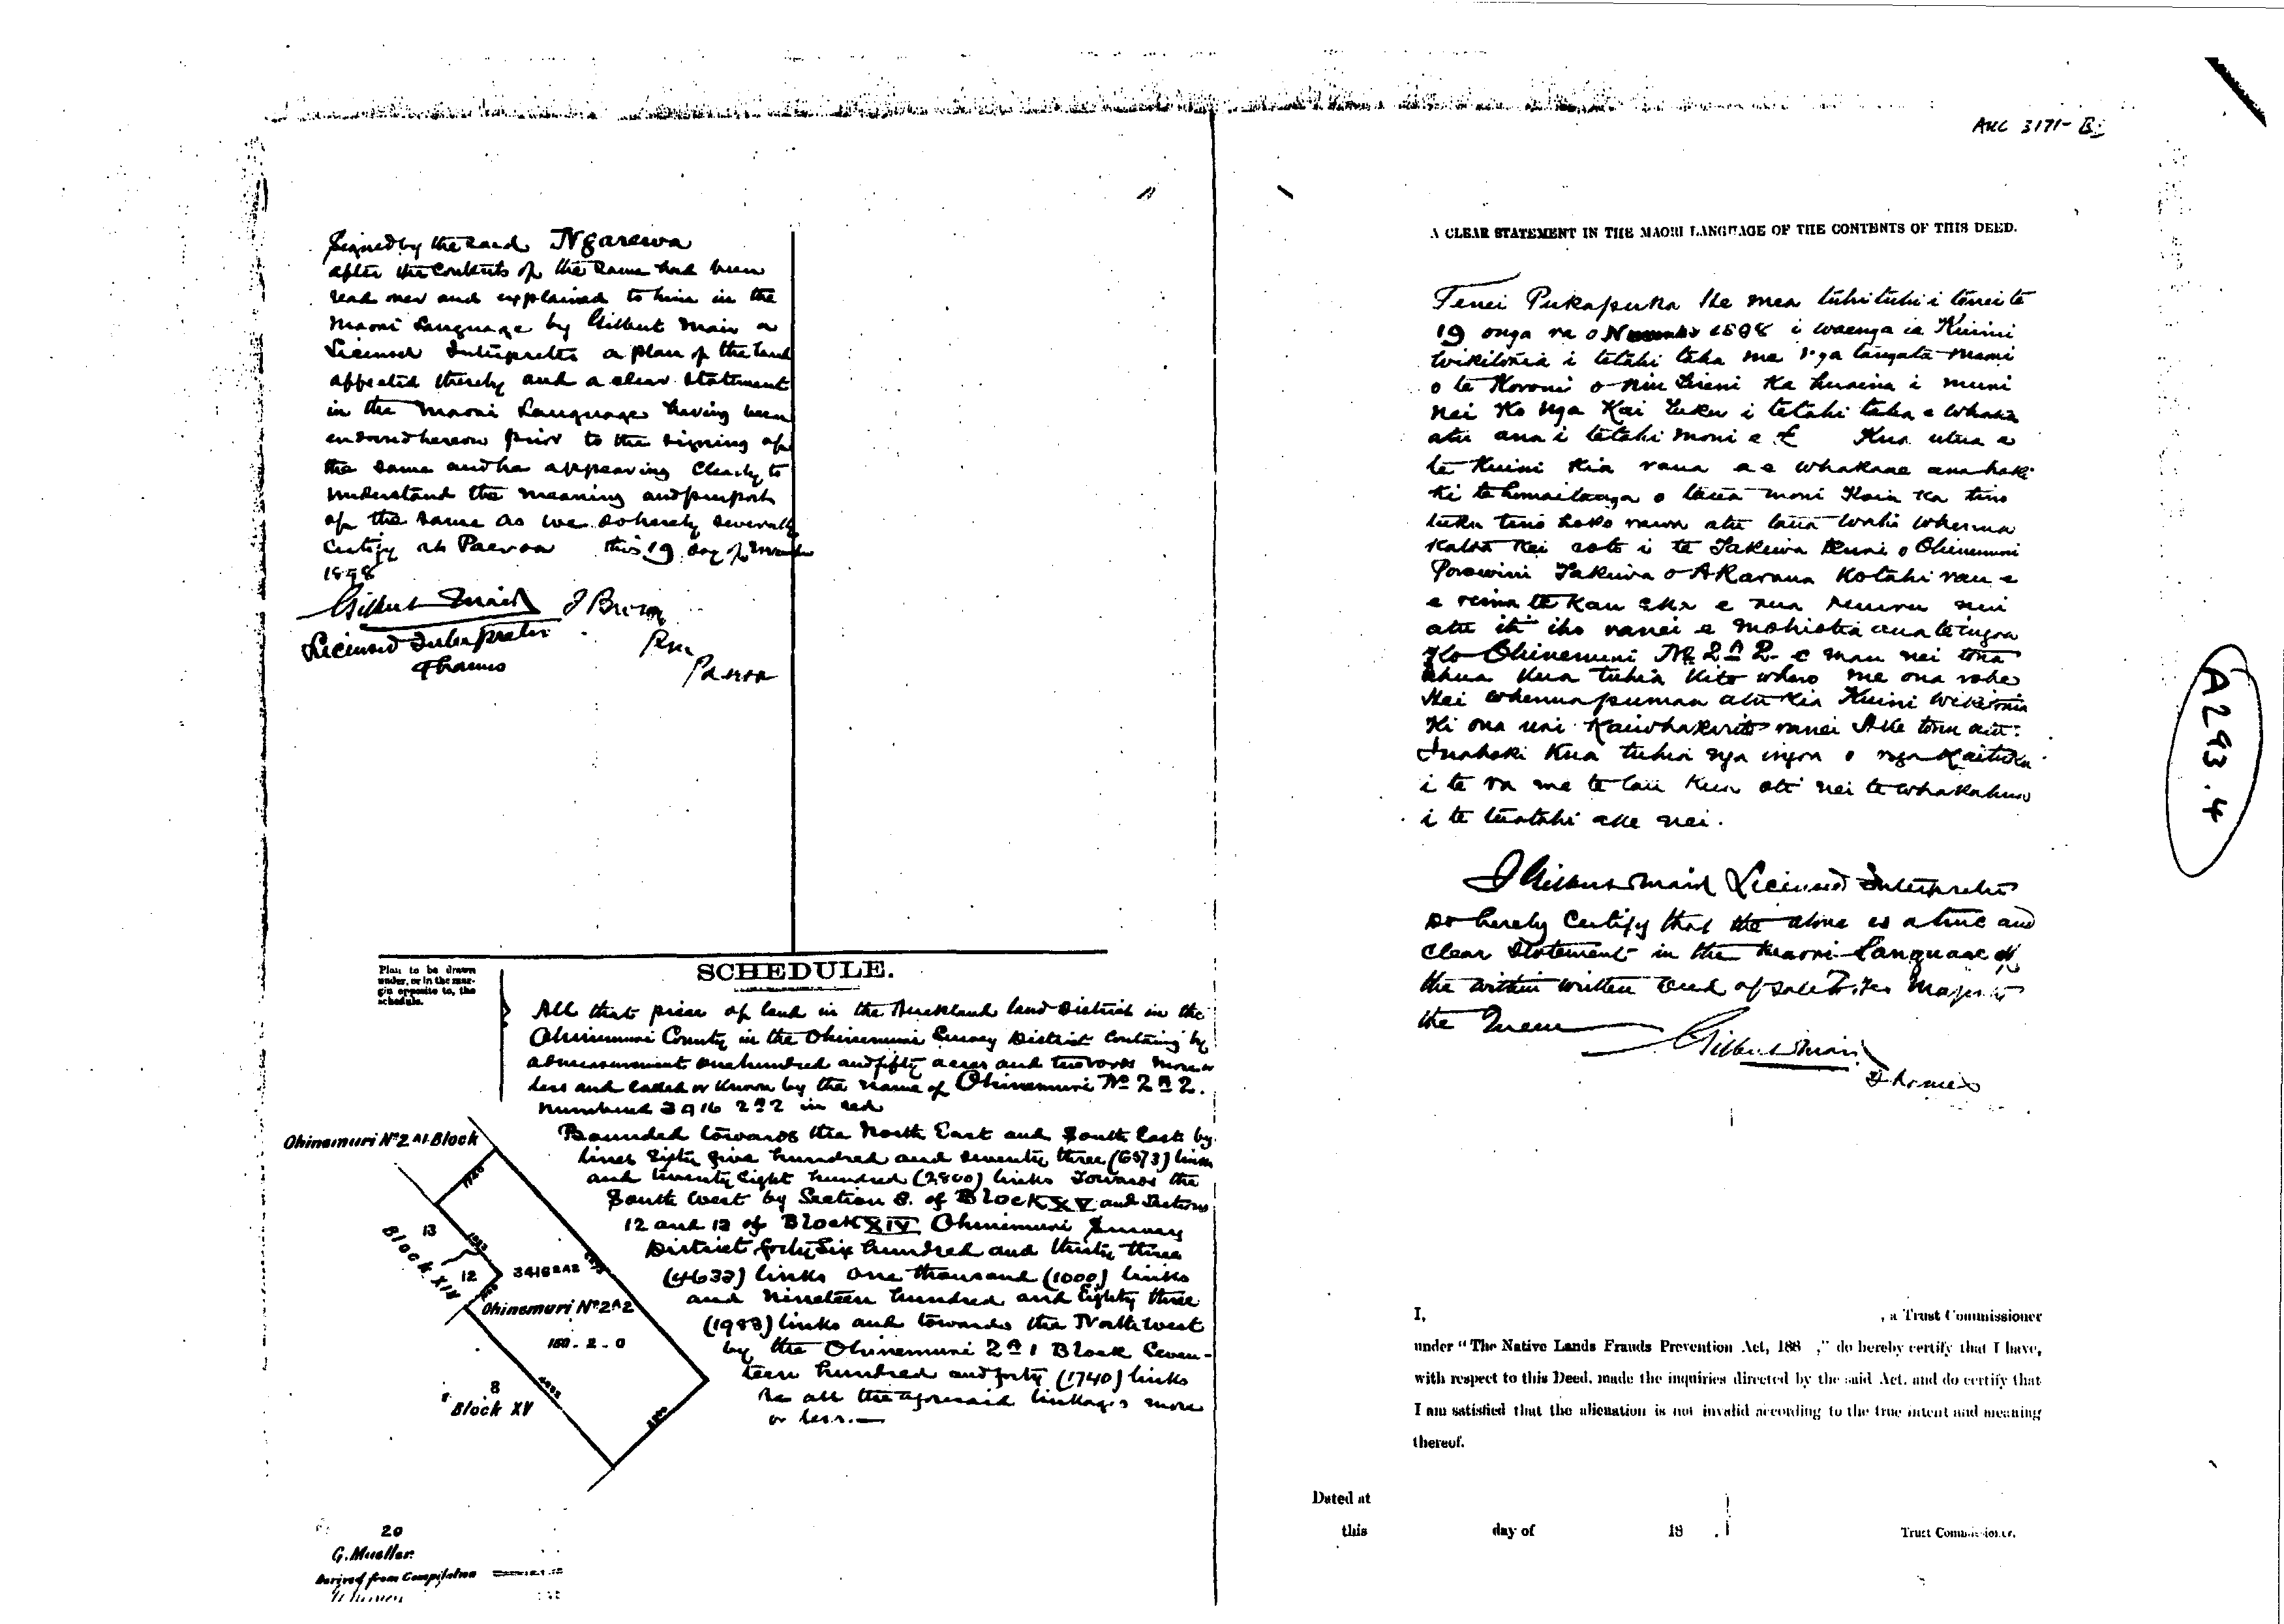 AUC 3171-B
Signed by the said Ngarewa
after the contents of the same had been
read over and explained to him in the
Maori Language by Gilbert Mair a
Licensed Interpreter a plan of the land
affected thereby and a clear statement
in the Maori Language having been
endorsed hereon prior to the signing of
the same and he appearing clearly to
understand the meaning and purport
of the same as we do hereby severally
certify at Paeroa this 19 day of November
1898
Gilbert Mair J Brown
Licensed Interpreter
Thames
Paeroa
SCHEDULE.
Plan to be drawn
under, or in the mar-
gin opposite to, the
schedule.
All that piece of land in the Auckland land District in the
Ohinemuri County in the Ohinemuri Survey District containing by
admeasurement one hundred and fifty acres and two roods more or
less and called or known by the name of Ohinemuri No 2A2.
numbered 3416 2A2 in red
Bounded towards the North East and South East by
lines sixty five hundred and seventy three (6573) links
and twenty eight hundred (2800) links Towards the
South West by Section 8. of Block XV and Sections
12 and 13 of Block XIV Ohinemuri Survey
District forty six hundred and thirty three
(4633) links one thousand (1000) links
and nineteen hundred and Eighty three
(1983) links and towards the North West
by the Ohinemuri 2A1 Block Seven-
teen hundred and forty (1740) links
be all the aforesaid linkages more
or less.—
Ohinemuri No 2A1 Block
1740
13
Block XIV
12
3416 2A2
Ohinemuri No 2A2
150.2.0
8
Block XV
20
G. Mueller
Derived from Compilation
A CLEAR STATEMENT IN THE MAORI LANGUAGE OF THE CONTENTS OF THIS DEED.
Tenei Pukapuka he mea tuhituhi i tenei te
19 onga ra o November 1898 i waenga ia Kuini
Wikitoria i tetahi taha me nga tangata maori
o te Koroni o Niu Tireni ka huaina i muri
nei ko nga Kai tuku i tetahi taha e whaka
atu ana i tetahi moni e £ Kua utua e
te Kuini kia raua a e whakaae ana hoki
ki te homaitanga o taua moni Koia ka tino
tuku tino hoko rawa atu taua wahi whenua
katoa kei roto i te Takiwa Ruri o Ohinemuri
Porowini Takiwa o Akarana Kotahi rau e
e rima te kau eka e rua ruuru nui
atu iti iho ranei e mohiotia ana te ingoa
Ko Ohinemuri No 2A2 e mau nei tona
ahua kua tuhia kito whero me ona rohe
Hei whenua pumau atu kia Kuini Wikitoria
Ki ona uri Kaiwhakariite ranei Ake tonu atu:
Inahoki kua tuhia nga ingoa o nga Kaituku
i te ra me te tau kua oti nei te whakahua
i te tuatahi ake nei.
I Gilbert Mair Licensed Interpreter
Do hereby certify that the above is a true and
clear Statement in the Maori Language of
the within written Deed of Sale to Her Majesty
the Queen
Gilbert Mair
Thames
A293.4
I, , a Trust Commissioner
under "The Native Lands Frauds Prevention Act, 188 ," do hereby certify that I have,
with respect to this Deed, made the inquiries directed by the said Act, and do certify that
I am satisfied that the alienation is not invalid according to the true intent and meaning
thereof.
Dated at
this day of 18 .
Trust Commissioner.